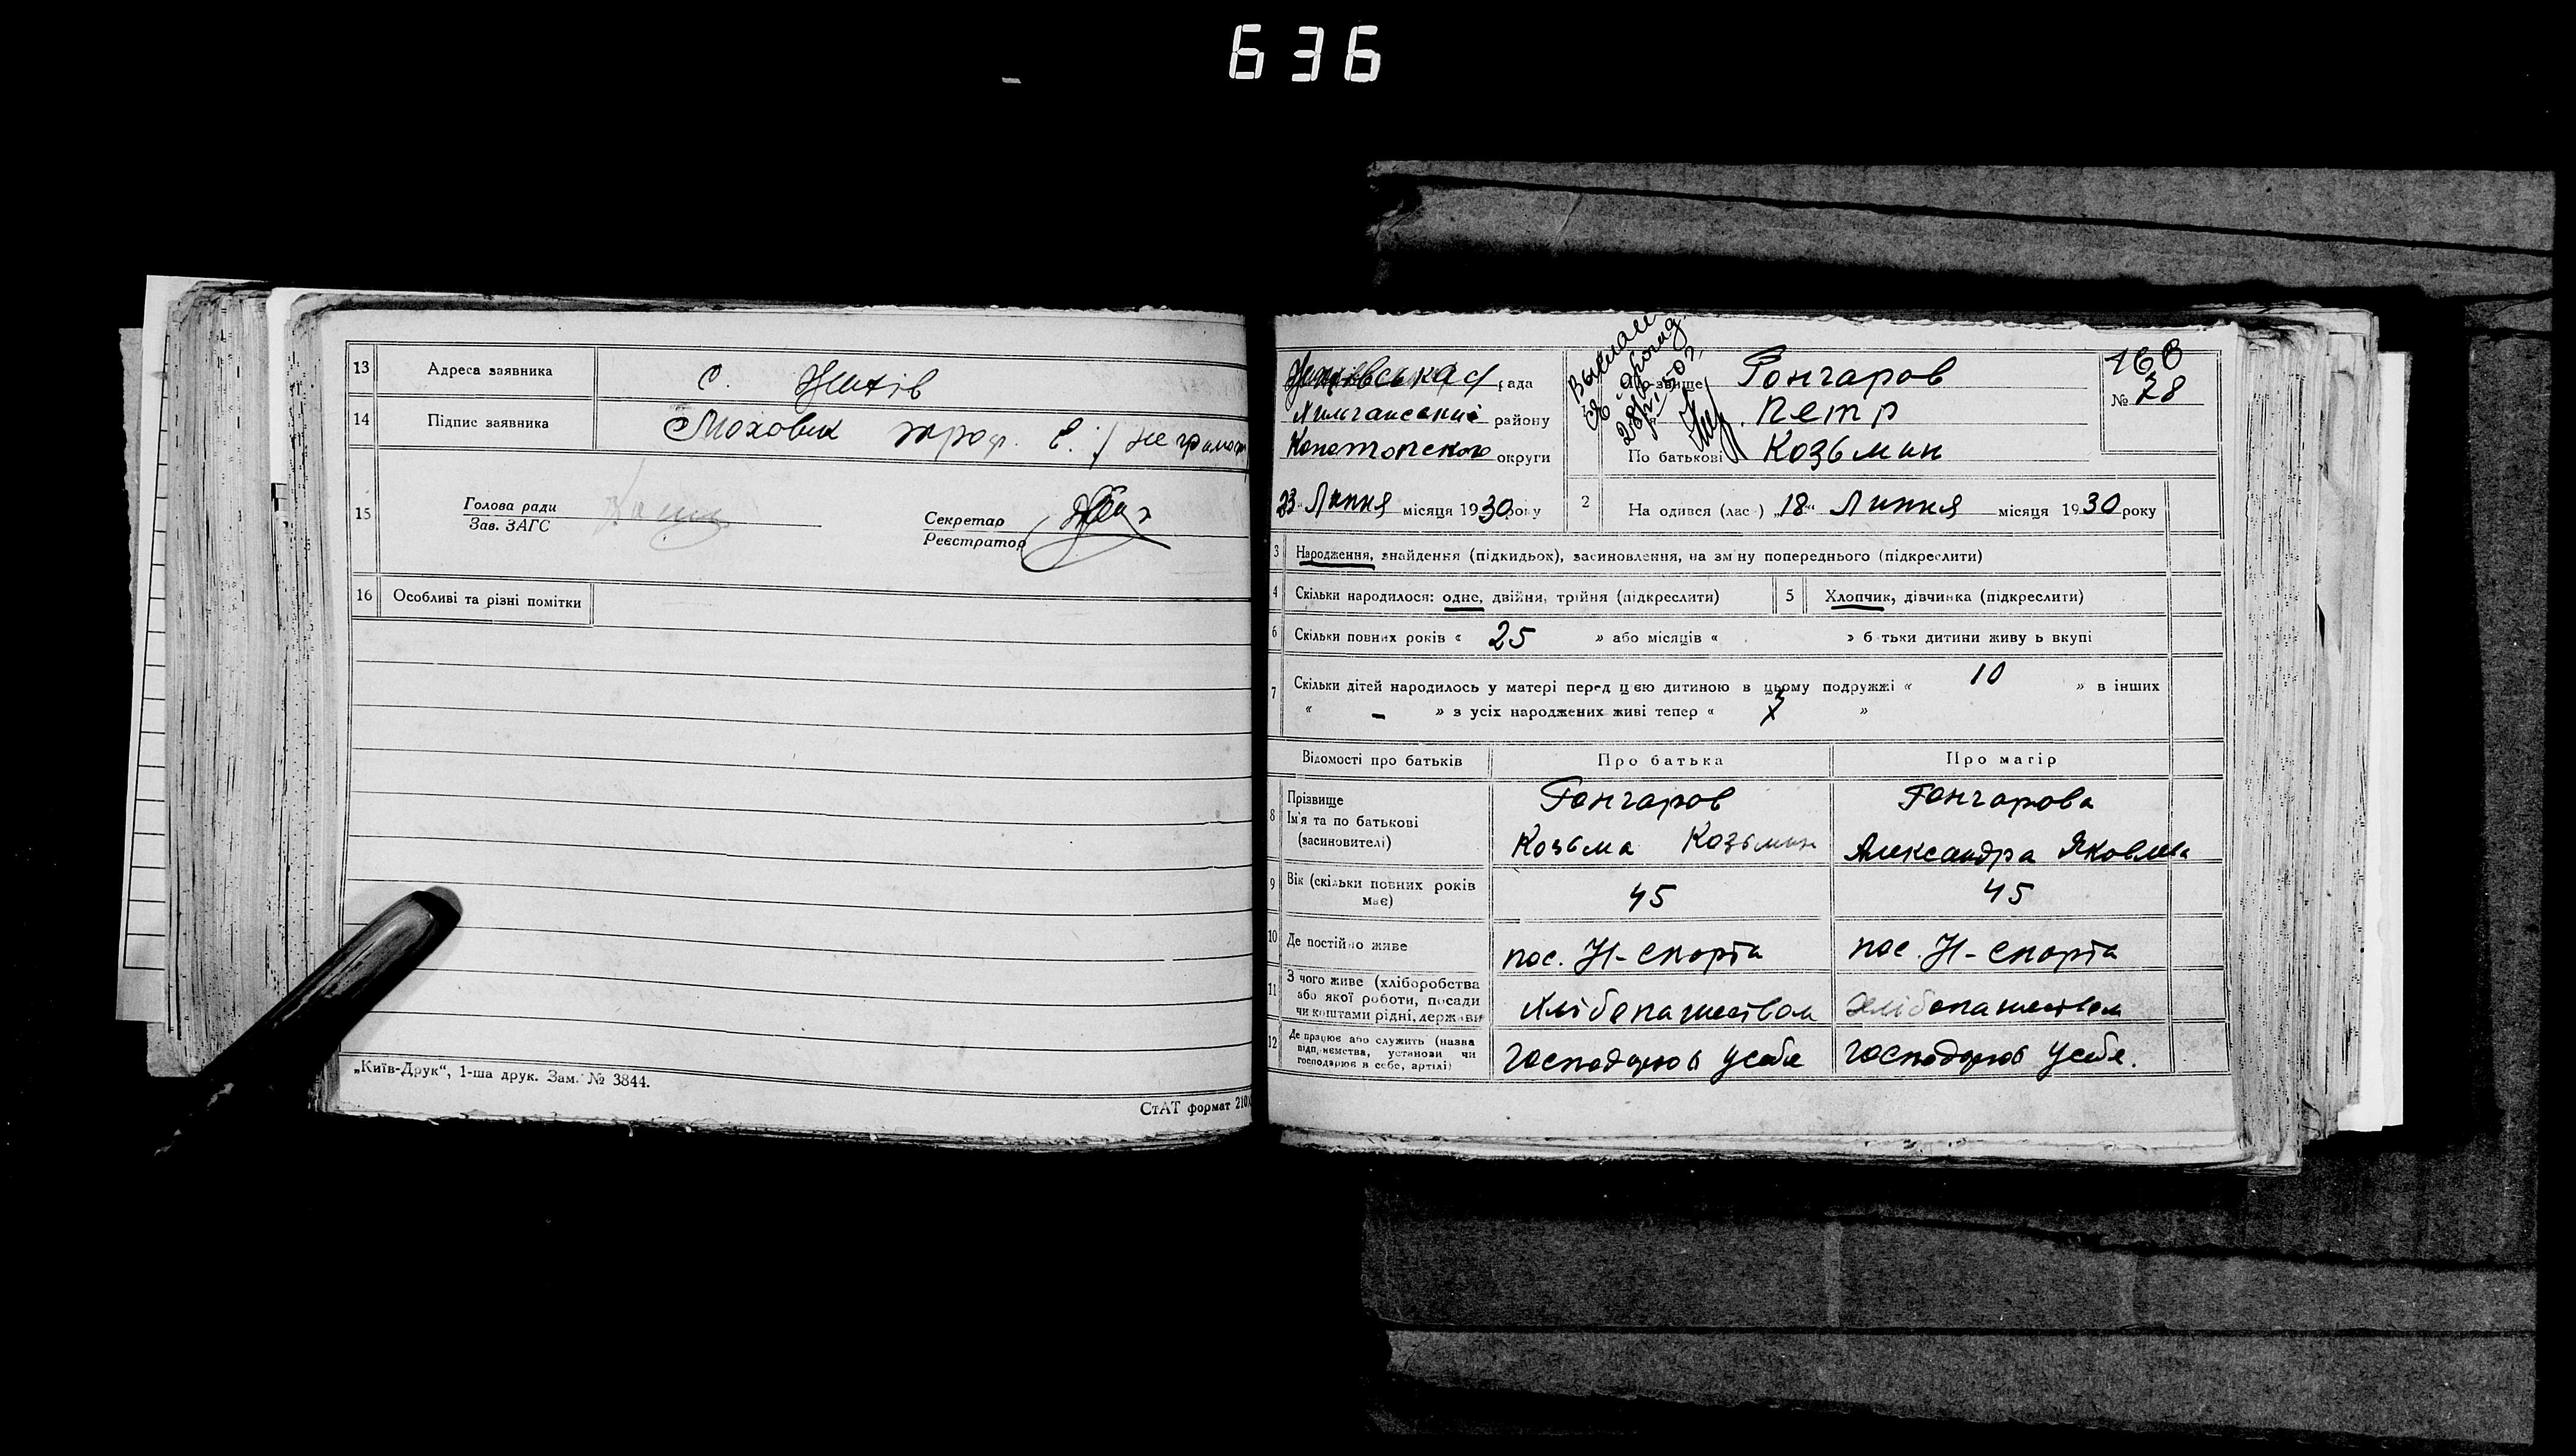 636
13 Адреса заявника с. Жихів
14 Підпис заявника Моховик
15 Голова ради
Зав. ЗАГС
Секретар
Реєстратор
16 Особливі та різні помітки
„Київ-Друк“, 1-ша друк. Зам. № 3844.
СтАТ формат 210
рада
району
Конотопского округи
23 Липня місяця 1930 року
Гончаров
Петр
По батькові Козьмин
160
№ 78
2 На одився (лас ) „18“ Липня місяця 1930 року
3 Народження, знайдення (підкидьох), засиновлення, на зміну попереднього (підкреслити)
4 Скільки народилося: одне, двійня, трійня (підкреслити)
5 Хлопчик, дівчинка (підкреслити)
6 Скільки повних років « 25 » або місяців « » б тьки дитини живу ь вкупі
7 Скільки дітей народилось у матері перед цією дитиною в цьому подружжі « 10 » в інших
« - » з усіх народжених живі тепер « »
Відомості про батьків Про батька Про матір
8 Прізвище Гончаров Гончарова
Ім'я та по батькові
(засиновителі) Козьма Козьмин Александра Яковлева
9 Вік (скільки повних років
має) 45 45
10 Де постійно живе пос. Н-
пос. Н-
11 З чого живе (хліборобства
або якої роботи, посади
чи коштами рідні, держави
Хлібопашеством Хлібопашеством
12 Де працює або служить (назва
підприємства, установи чи
господарює в себе, артілі)
господарюв усебе господарюв усебе.